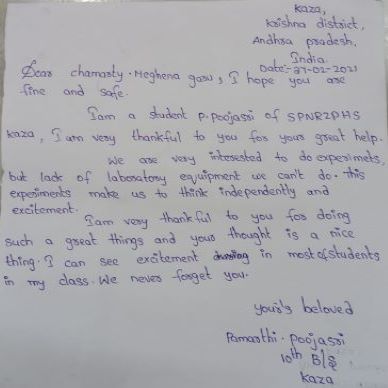 Kaza,
Krishna district,
Andhra pradesh,
India.
Date:- 27-02-2021
Dear chamarty. Meghena garu, I hope you are
fine and safe.
I am a student P. Poojasri of SPNRZPHS
Kaza, I am very thankful to you for your great help.
We are very interested to do experimets,
but lack of laboratory equipment we can't do. this
experiments make us to think independently and
excitement.
I am very thankful to you for doing
such a great things and your thought is a nice
thing. I can see excitement in most of students
in my class. We never forget you.
your's beloved
Pamarthi. poojasri
10th B/S
Kaza